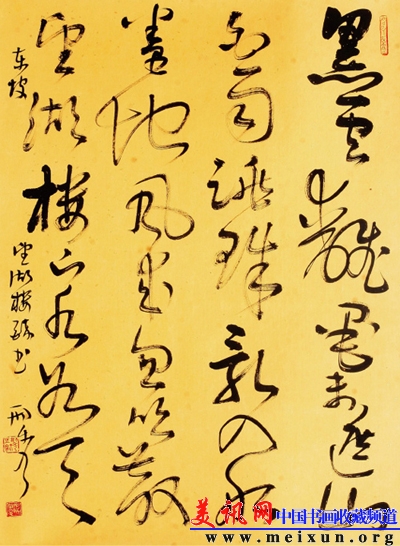 黑云翻墨未遮山
白雨跳珠乱入船
卷地风来忽吹散
望湖楼下水如天
东坡
望湖楼诗书
美讯网 中国书画收藏频道
www.meixun.org